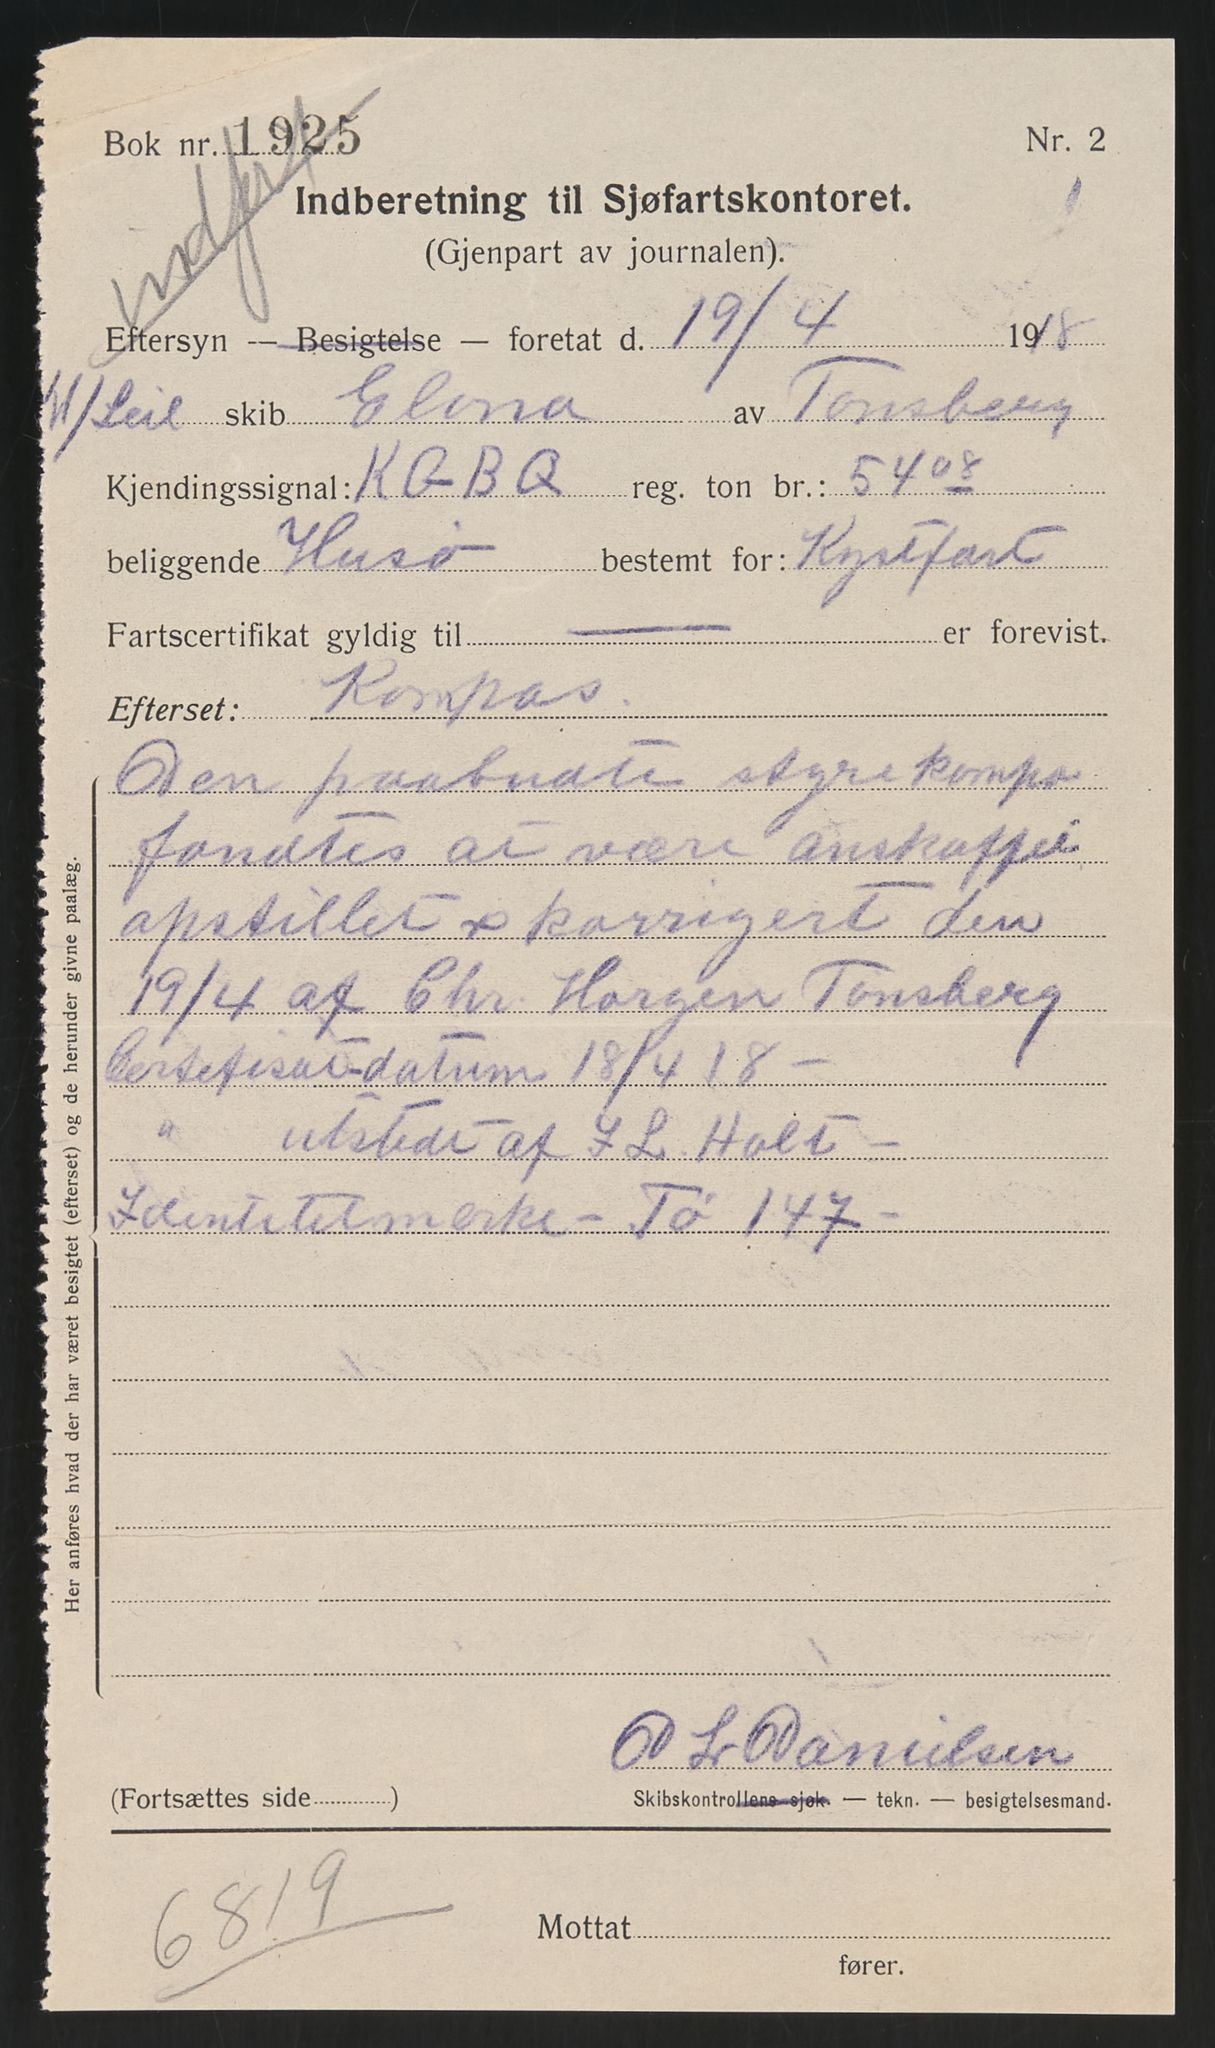 Bok nr. 1925 Nr. 2
Indført
Indberetning til Sjøfartskontoret.
(Gjenpart av journalen).
Eftersyn — Besigtelse — foretat d. 19/4 1918
M/Seil skib Elona av Tønsberg
Kjendingssignal: reg. ton br.: 54 08
beliggende Husö bestemt for: Kystfart
Fartscertifikat gyldig til — er forevist.
Efterset: Kompas.
Den paabudte styrekompas
fandtes at være anskaffet
opstillet & korrigert den
19/4 af Chr. Horgen Tønsberg
Certefikat-datum 18/4 18 —
" utstedt af I L. Holt —
Identitetmerke - Tö 147 -
Her anføres hvad der har været besigtet (efterset) og de herunder givne paalæg.
D L Danielsen
(Fortsættes side )
Skibskontrollens sjøk. — tekn. — besigtelsesmand.
6819
Mottat
fører.